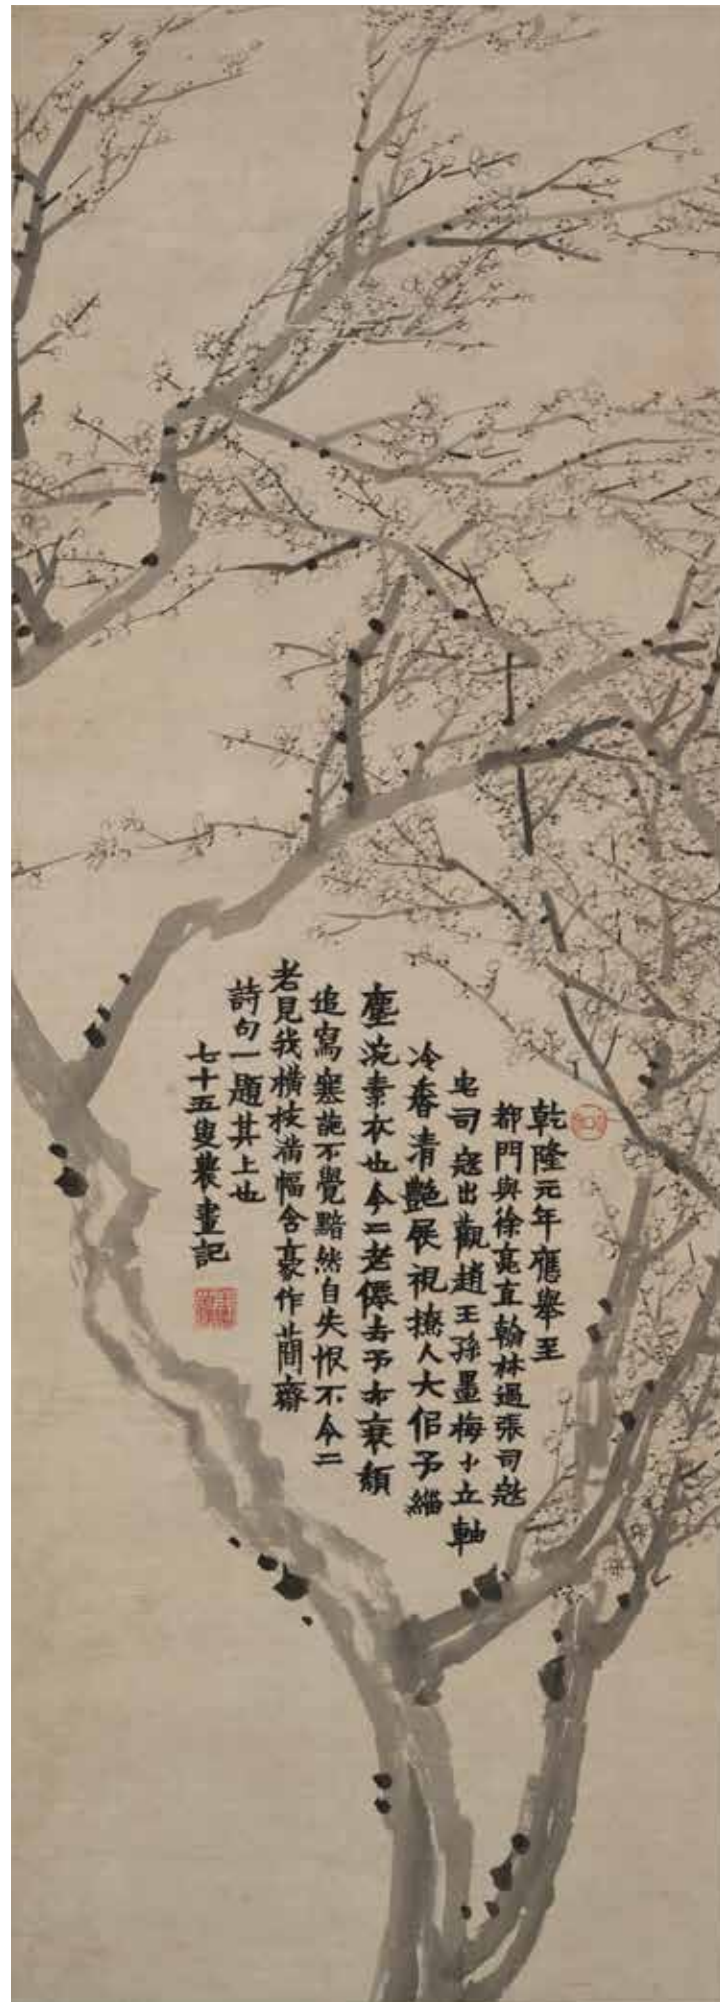 乾隆元年應舉至
都門與徐亮直翰林過張司寇
宅司寇出觀趙王孫墨梅小立軸
冷香清艷展視撩人大侶予緇
塵浣素衣也今二老僊去予亦衰頹
追寫寒葩不覺黯然自失恨不令二
老見我橫枝滿幅含豪作蕳齋
詩句一題其上也
七十五叟農畫記